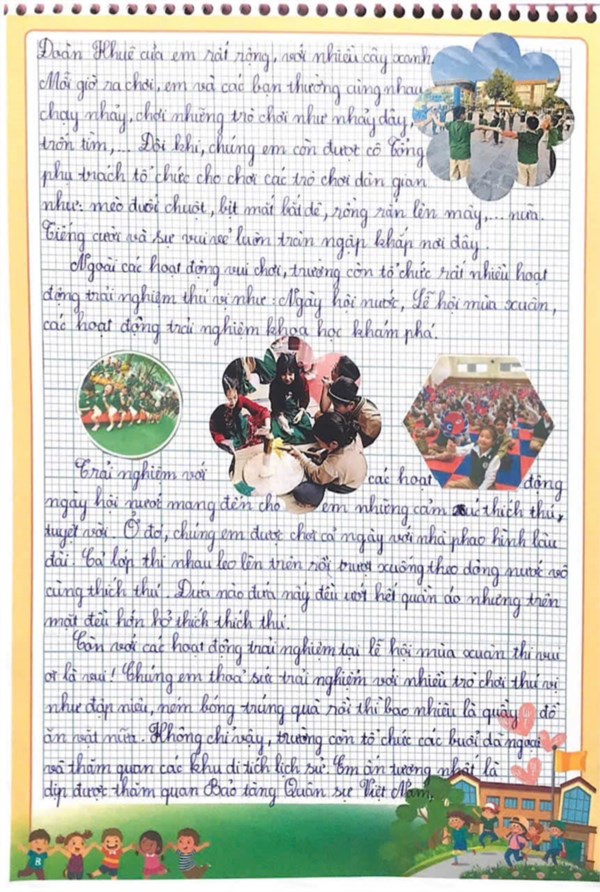 Đoàn Khuê của em rất rộng, với nhiều cây xanh.
Mỗi giờ ra chơi, em và các bạn thường cùng nhau
chạy nhảy, chơi những trò chơi như nhảy dây,
trốn tìm,... Đôi khi, chúng em còn được cô Tổng
phụ trách tổ chức cho chơi các trò chơi dân gian
như: mèo đuổi chuột, bịt mắt bắt dê, rồng rắn lên mây,... nữa.
Tiếng cười và sự vui vẻ luôn tràn ngập khắp nơi đây.
Ngoài các hoạt động vui chơi, trường còn tổ chức rất nhiều hoạt
động trải nghiệm thú vị như: Ngày hội nước, Lễ hội mùa xuân,
các hoạt động trải nghiệm khoa học khám phá.
Trải nghiệm với các hoạt động
ngày hội nước mang đến cho em những cảm xúc thích thú,
tuyệt vời. Ở đó, chúng em được chơi cả ngày với nhà phao hình lâu
đài. Cả lớp thi nhau leo lên trên rồi trượt xuống theo dòng nước vô
cùng thích thú. Đứa nào đứa này đều ướt hết quần áo nhưng trên
mặt đều hớn hở thích thích thú.
Còn với các hoạt động trải nghiệm tại lễ hội mùa xuân thì vui
ơi là vui! Chúng em thoả sức trải nghiệm với nhiều trò chơi thú vị
như đập niêu, ném bóng trúng quà rồi thì bao nhiêu là quầy đồ
ăn vặt nữa. Không chỉ vậy, trường còn tổ chức các buổi dã ngoại
và thăm quan các khu di tích lịch sử. Em ấn tượng nhất là
dịp được thăm quan Bảo tàng Quân sự Việt Nam,
8